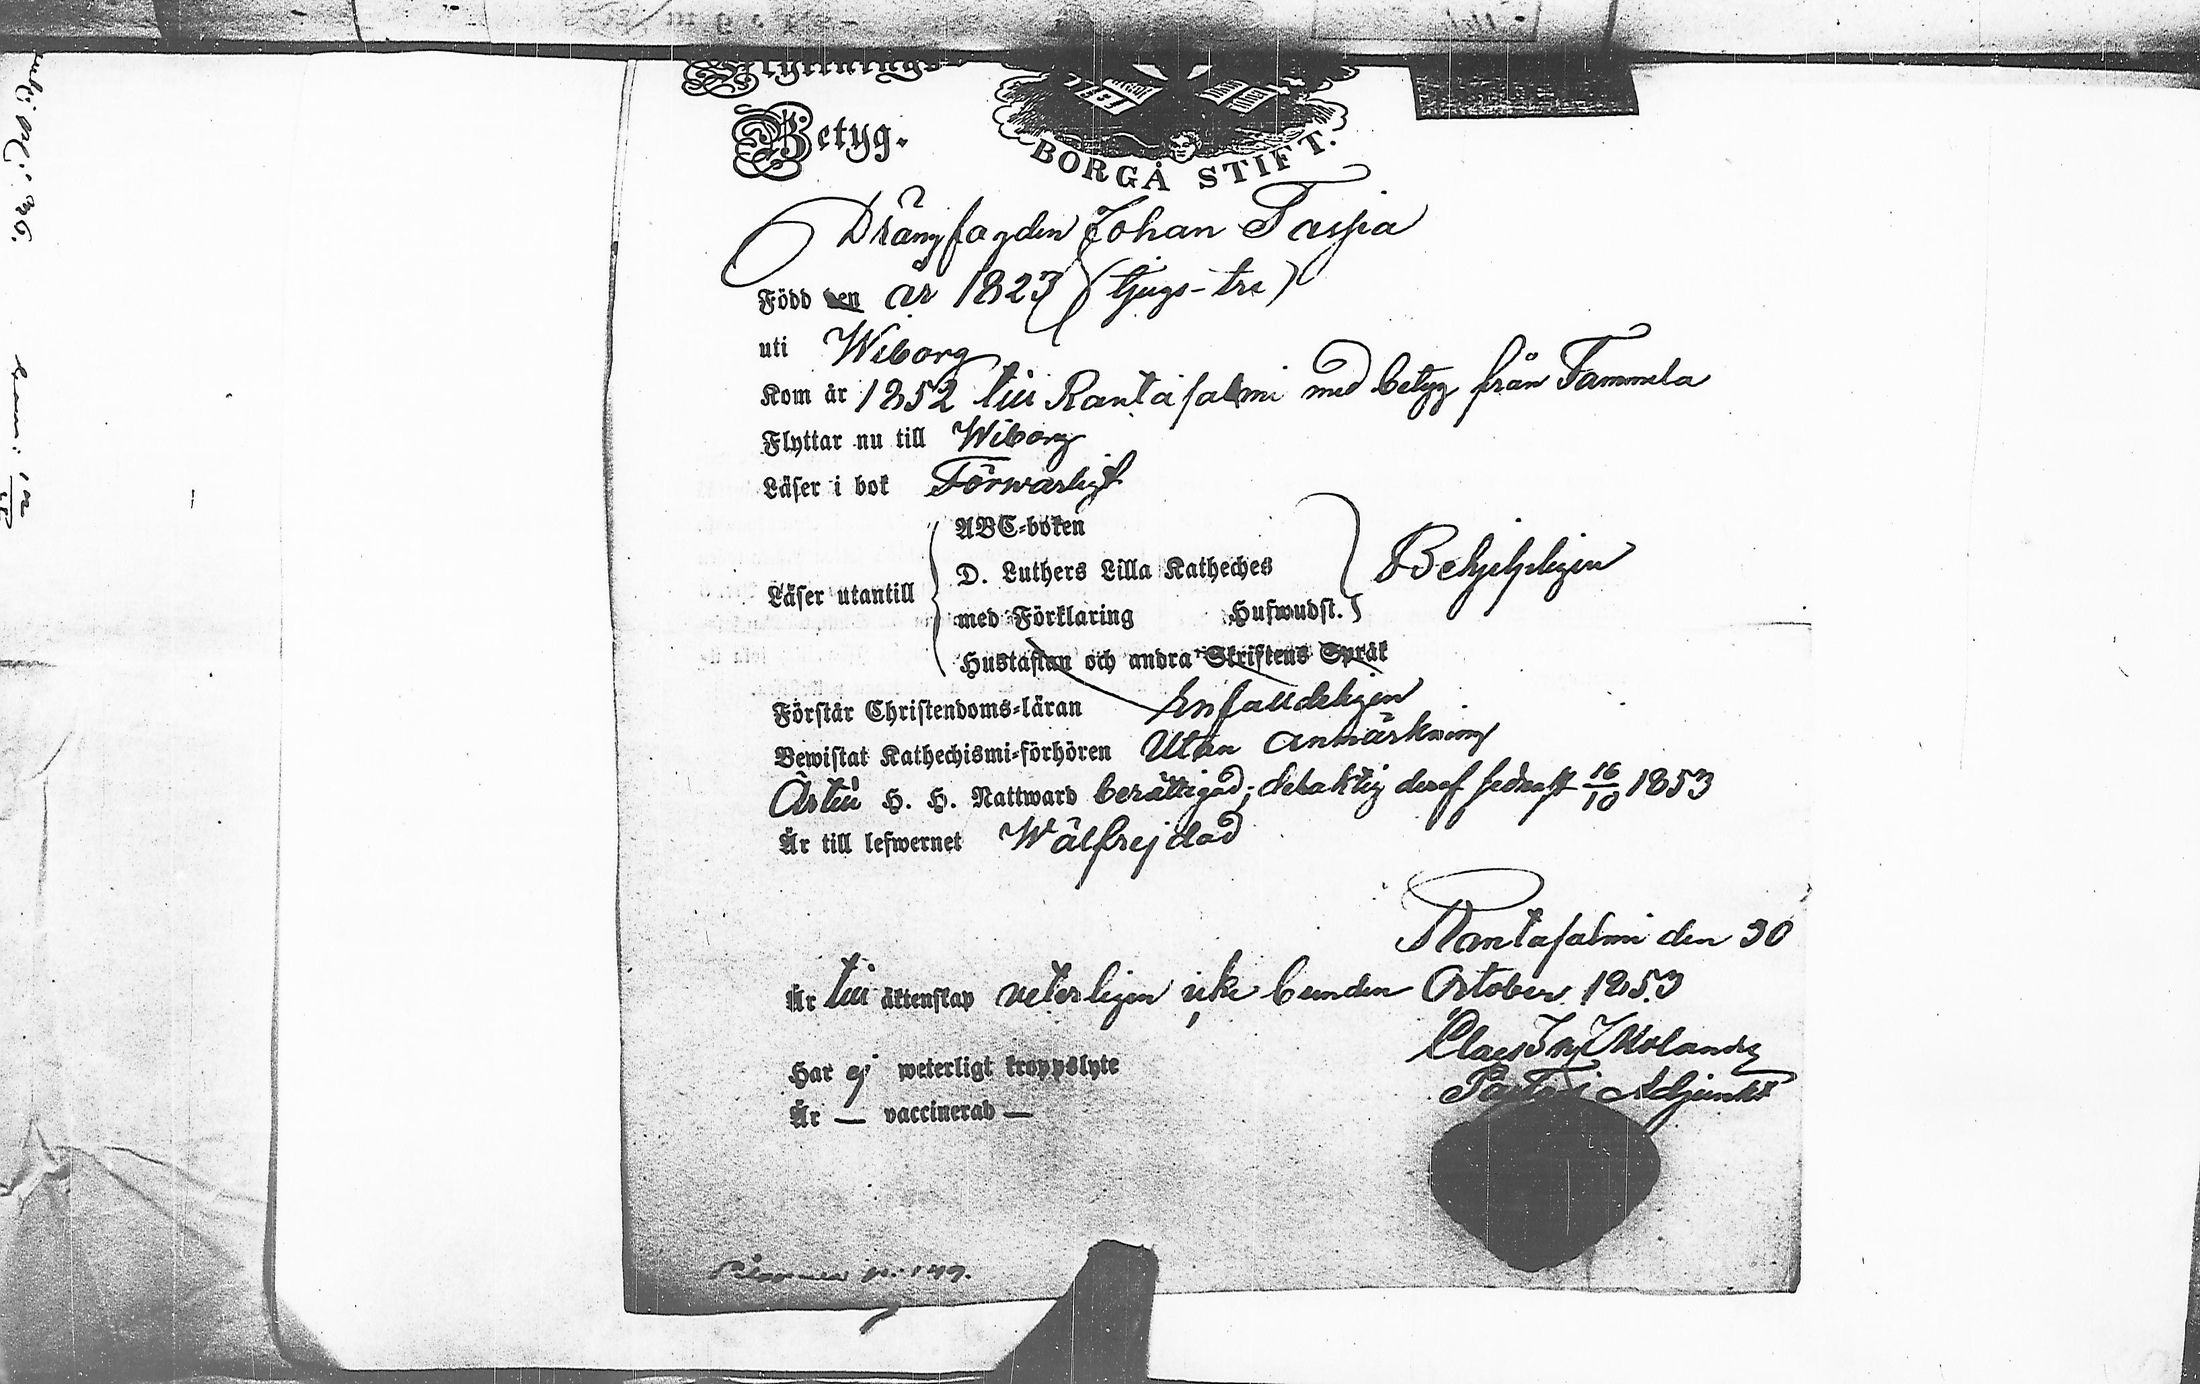 Flyttnings-
Betyg.
BORGÅ STIFT.
Drängfogden Johan
Född den år 1823 (tjugo-tre)
uti Wiborg
Kom år 1852 till Rantasalmi med betyg från Tammela
Flyttar nu till Wiborg
Läser i bok Förswarligt
Läser utantill
ABC-boken
D. Luthers Lilla Katheches
med Förklaring Hufwudst.
Hustaflan och andra Skriftens Språk
Behjelpligen
Förstår Christendoms-läran Enfalldeligen
Bewistat Kathechismi-förhören Utan anmärkning
Är till H. H. Nattward berättigad, delaktig deraf sednast 16/10 1853
Är till lefwernet Wälfrejdad
Rantasalmi den 30
Är till äktenskap veterligen icke bunden October 1853
Claes
Har ej weterligt kroppslyte
Pastors Adjunkt
Är — vaccinerad —
p. 149.